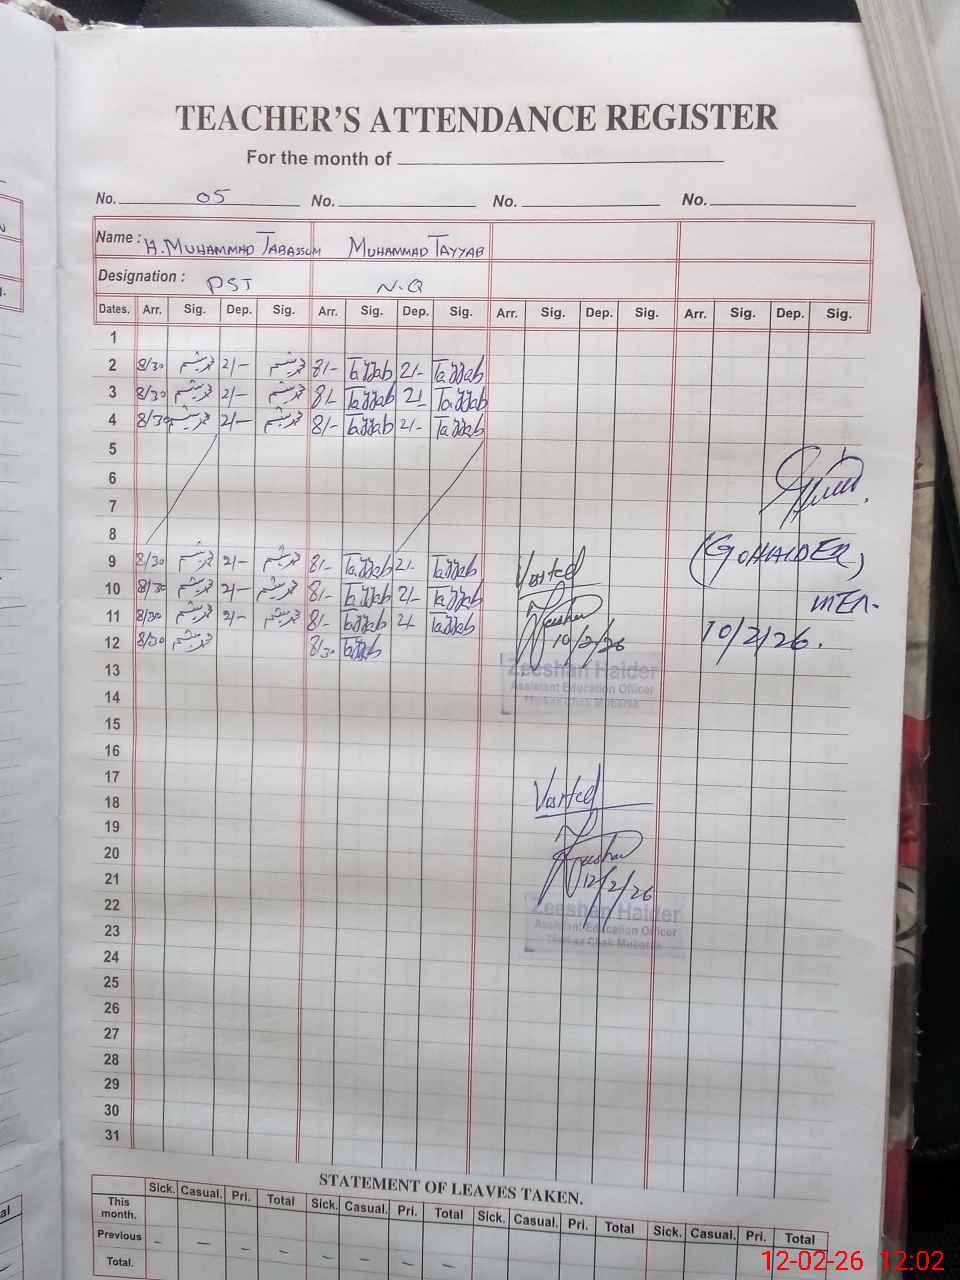 TEACHER'S ATTENDANCE REGISTER
For the month of
No. 05 No. No. No.
Name : H. MUHAMMAD TABASSUM MUHAMMAD TAYYAB
Designation : PST N.Q
Dates. Arr. Sig. Dep. Sig. Arr. Sig. Dep. Sig. Arr. Sig. Dep. Sig. Arr. Sig. Dep. Sig.
1
2 8/30 2/- 8/- Tayyab 2/- Tayyab
3 8/30 2/- 8/- Tayyab 2/- Tayyab
4 8/30 2/- 8/- Tayyab 2/- Tayyab
5
6
7
8
9 8/30 2/- 8/- Tayyab 2/- Tayyab
10 8/30 2/- 8/- Tayyab 2/- Tayyab
11 8/30 2/- 8/- Tayyab 2/- Tayyab
12 8/30 8/30 Tayyab
13
14
15
16
17
18
19
20
21
22
23
24
25
26
27
28
29
30
31
10/2/26
Zeeshan Haider
Assistant Education Officer
12/2/26
Zeeshan Haider
Assistant Education Officer
10/2/26.
STATEMENT OF LEAVES TAKEN.
Sick. Casual. Pri. Total Sick. Casual. Pri. Total Sick. Casual. Pri. Total Sick. Casual. Pri. Total
This month.
Previous - - - - - -
Total. - -
12-02-26 12:02